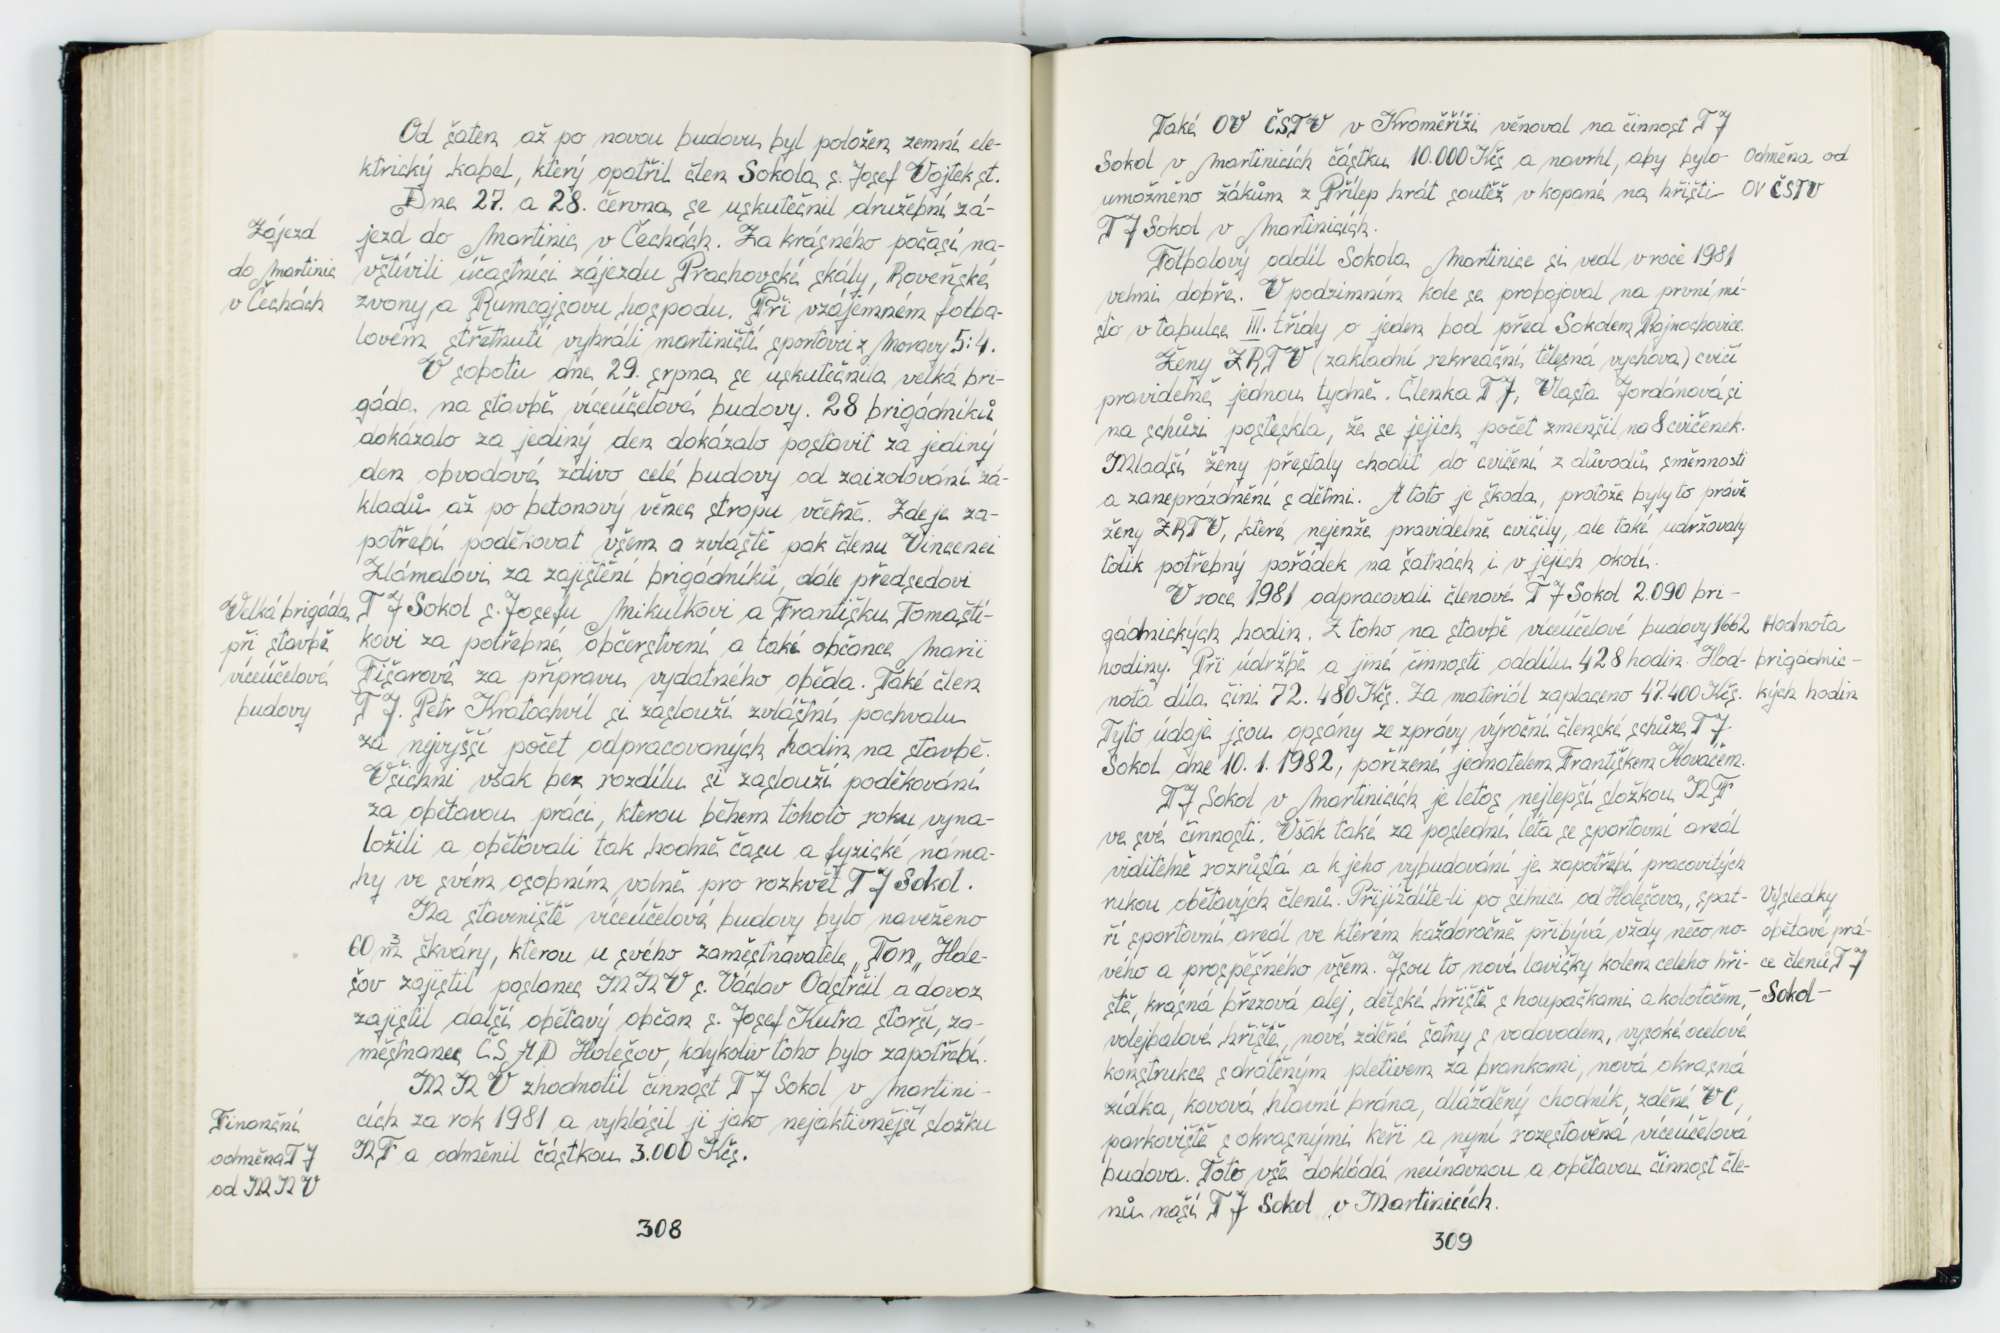 Od šaten až po novou budovu byl položen zemní ele-
ktrický kabel, který opatřil člen Sokola s. Josef Vojtek st.
Dne 27. a 28. června se uskutečnil družební zá-
Zájezd
do Martinic
v Čechách
jezd do Martinic v Čechách. Za krásného počasí na-
vštívili účastníci zájezdu Prachovské skály, Rovenské
zvony a Rumcajsovu hospodu. Při vzájemném fotba-
lovém střetnutí vyhráli martiničtí sportovci z Moravy 5:4.
V sobotu dne 29. srpna se uskutečnila velká bri-
gáda na stavbě víceúčelové budovy. 28 brigádníků
dokázalo za jediný den dokázalo postavit za jediný
den obvodové zdivo celé budovy od zaizolování zá-
kladů až po betonový věnec stropu včetně. Zde je za-
potřebí poděkovat všem a zvláště pak členu Vincenci
Zlámalovi za zajištění brigádníků, dále předsedovi
Velká brigáda
při stavbě
víceúčelové
budovy
TJ Sokol s. Josefu Mikulkovi a Františku Tomaští-
kovi za potřebné občerstvení a také občance Marii
Fišarové za přípravu vydatného oběda. Také člen
TJ. Petr Kratochvíl si zaslouží zvláštní pochvalu
za nejvyšší počet odpracovaných hodin na stavbě.
Všichni však bez rozdílu si zaslouží poděkování
za obětavou práci, kterou během tohoto roku vyna-
ložili a obětovali tak hodně času a fyzické náma-
hy ve svém osobním volně pro rozkvět TJ Sokol.
Na staveniště víceúčelové budovy bylo naveženo
60 m³ škváry, kterou u svého zaměstnavatele „Ton„ Hole-
šov zajistil poslanec MNV s. Václav Odstrčil a dovoz
zajistil další obětavý občan s. Josef Kutra starší, za-
městnanec ČSAD Holešov, kdykoliv toho bylo zapotřebí.
MNV zhodnotil činnost TJ Sokol v Martini-
Finanční
odměna TJ
od MNV
cích za rok 1981 a vyhlásil ji jako nejaktivnější složku
NF a odměnil částkou 3.000 Kčs.
308
Také OV ČSTV v Kroměříži věnoval na činnost TJ
Sokol v Martinicích částku 10.000 Kčs a navrhl, aby bylo
umožněno žákům z Přílep hrát soutěž v kopané na hřišti
TJ Sokol v Martinicích.
Odměna od
OV ČSTV
Fotbalový oddíl Sokola Martinice si vedl v roce 1981
velmi dobře. V podzimním kole se probojoval na první mí-
sto v tabulce III. třídy o jeden bod před Sokolem Rajnochovice.
Ženy ZRTV (základní rekreační tělesná vychova) cvičí
pravidelně jednou tydně. Členka TJ, Vlasta Jordánová si
na schůzi posteskla, že se jejich počet zmenšil na 8 cvičenek.
Mladší ženy přestaly chodit do cvičení z důvodů směnnosti
a zaneprázdnění s dětmi. A toto je škoda, protože byly to právě
ženy ZRTV, které nejenže pravidelně cvičily, ale také udržovaly
tolik potřebný pořádek na šatnách i v jejich okolí.
V roce 1981 odpracovali členové TJ Sokol 2.090 bri-
gádnických hodin. Z toho na stavbě víceúčelové budovy 1662
hodiny. Při údržbě a jiné činnosti oddílu 428 hodin. Hod-
nota díla činí 72.480 Kčs. Za materiál zaplaceno 47.400 Kčs.
Hodnota
brigádnic-
kých hodin
Tyto údaje jsou opsány ze zprávy výroční členské schůze TJ
Sokol dne 10. 1. 1982, pořízené jednatelem Františkem Kovářem.
TJ Sokol v Martinicích je letos nejlepší složkou NF
ve své činnosti. Však také za poslední léta se sportovní areál
viditelně rozrůstá a k jeho vybudování je zapotřebí pracovitých
rukou obětavých členů. Přijíždíte-li po silnici od Holešova, spat-
ří sportovní areál ve kterém každoročně přibývá vždy něco no-
vého a prospěšného všem. Jsou to nové lavičky kolem celého hři-
ště, krásná březová alej, dětské hřiště s houpačkami a kolotočem,
Výsledky
obětavé prá-
ce členů TJ
- Sokol -
volejbalové hřiště, nové zděné šatny s vodovodem, vysoké ocelové
konstrukce s drátěným pletivem za brankami, nová okrasná
zídka, kovová hlavní brána, dlážděný chodník, zděné VC,
parkoviště s okrasnými keři a nyní rozestavěná víceúčelová
budova. Toto vše dokládá neúnavnou a obětavou činnost čle-
nů naší TJ Sokol v Martinicích.
309